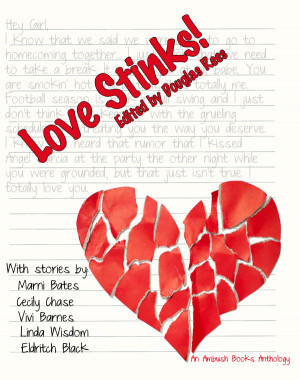 Hey Girl,
I know that we said we were to go to
homecoming together. I we need
to take a break. It babe. You
are smokin' hot totally me.
Football season is swing and I just
don't think keep with the grueling
schedule treating you the way you deserve.
I know heard that rumor that I kissed
Angel Garcia at the party the other night while
you were grounded, but that just isn't true.
I totally love you.
Love Stinks!
Edited by Douglas Rees
With stories by:
Marni Bates
Cecily Chase
Vivi Barnes
Linda Wisdom
Eldritch Black
An Ambush Books Anthology